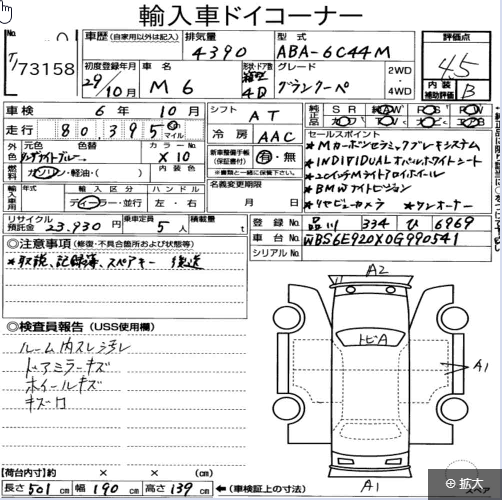 輸入車ドイコーナー
No.
7/73158
車歴 (自家用以外は記入)
排気量 4390
型式 ABA-6C44M
評価点 4.5
初度登録年月 29年 10月
車名 M6
形状・ドア数 箱型 4D
グレード グランクーペ
2WD・4WD
内装補助評価 B
車検 6年 10月
シフト AT
純正品 SR AW PS PW
走行 80,395 km マイル
冷房 AAC
セールスポイント
外色 元色 色替 カラーNo. X10
燃料 ガソリン・軽油・( ) 内装色
新車整備手帳(保証書付) 有・無
(※書類と一緒に保管してください)
輸入車用 年式 輸入区分 ハンドル
年 ディーラー・並行 左・右
名義変更期限 月 日
※Mカーボンセラミックブレーキシステム
※INDIVIDUALオパールホワイトシート
※20インチMライトアロイホイール
※BMWナイトビジョン
※リヤビューカメラ ※ワンオーナー
リサイクル預託金 23,930円
乗車定員 5人
積載量 t
登録No. 品川 334 ひ 6969
車台No. WBS6E920X0G990541
シリアルNo.
◎注意事項 (修復・不具合箇所および状態等)
※取説、記録簿、スペアキー 後送
◎検査員報告 (USS使用欄)
ルーム内スレ汚レ
ドアミラーキズ
ホイールキズ
キズ有
A2
トビA
A1
A1
【荷台内寸】約 × × (cm)
長さ 501 cm 幅 190 cm 高さ 139 cm ←(車検証上の寸法)
スペア
拡大